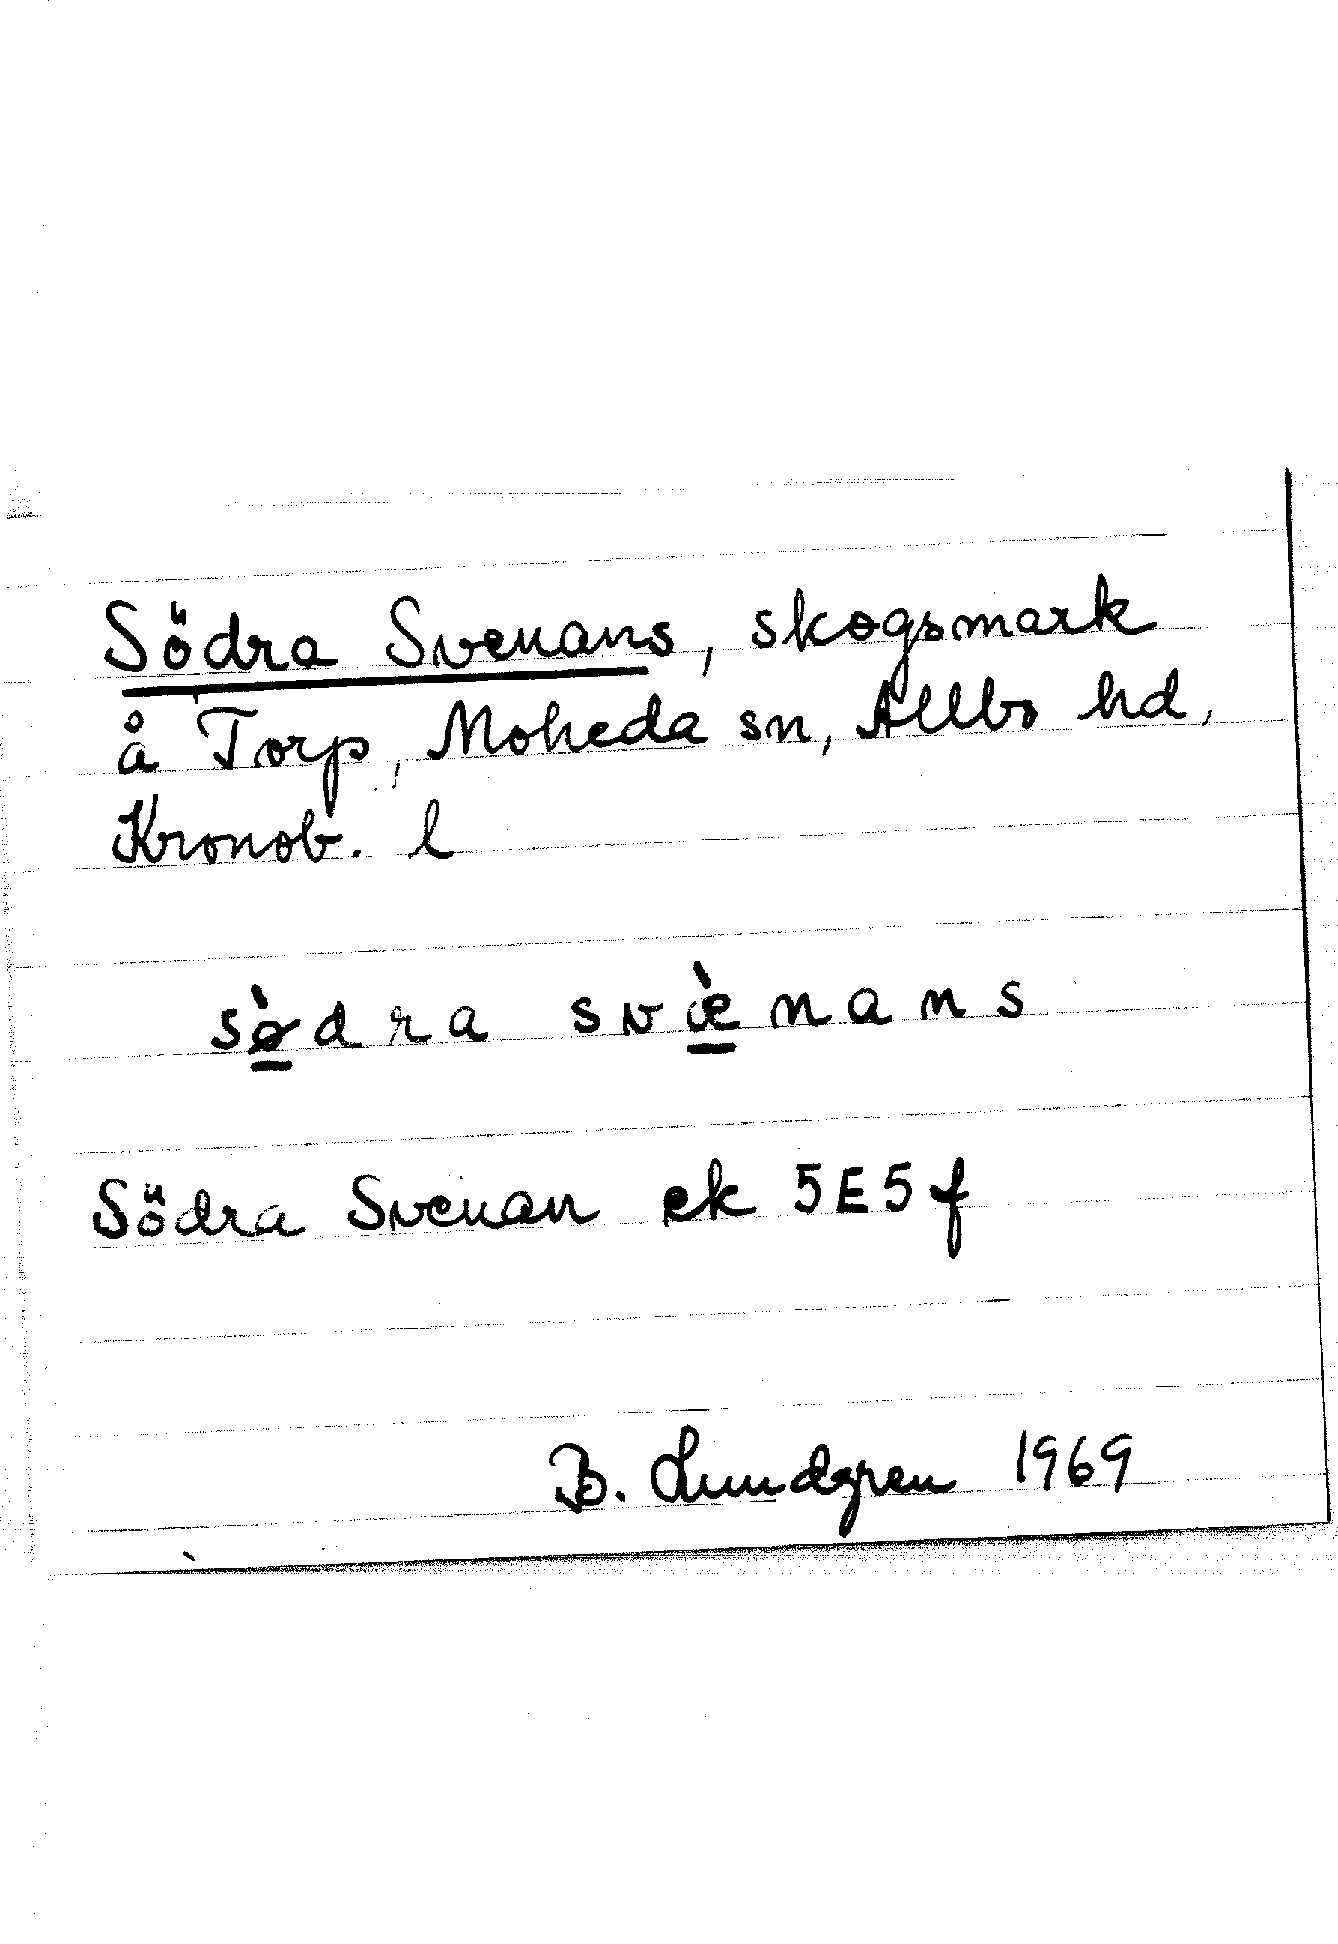 Södra Svenans, skogsmark
å Torp, Moheda sn, Allbo hd,
Kronob. l
sø̀dra svæ̀nans
Södra Svenan ek 5E5f
B. Lundgren 1969